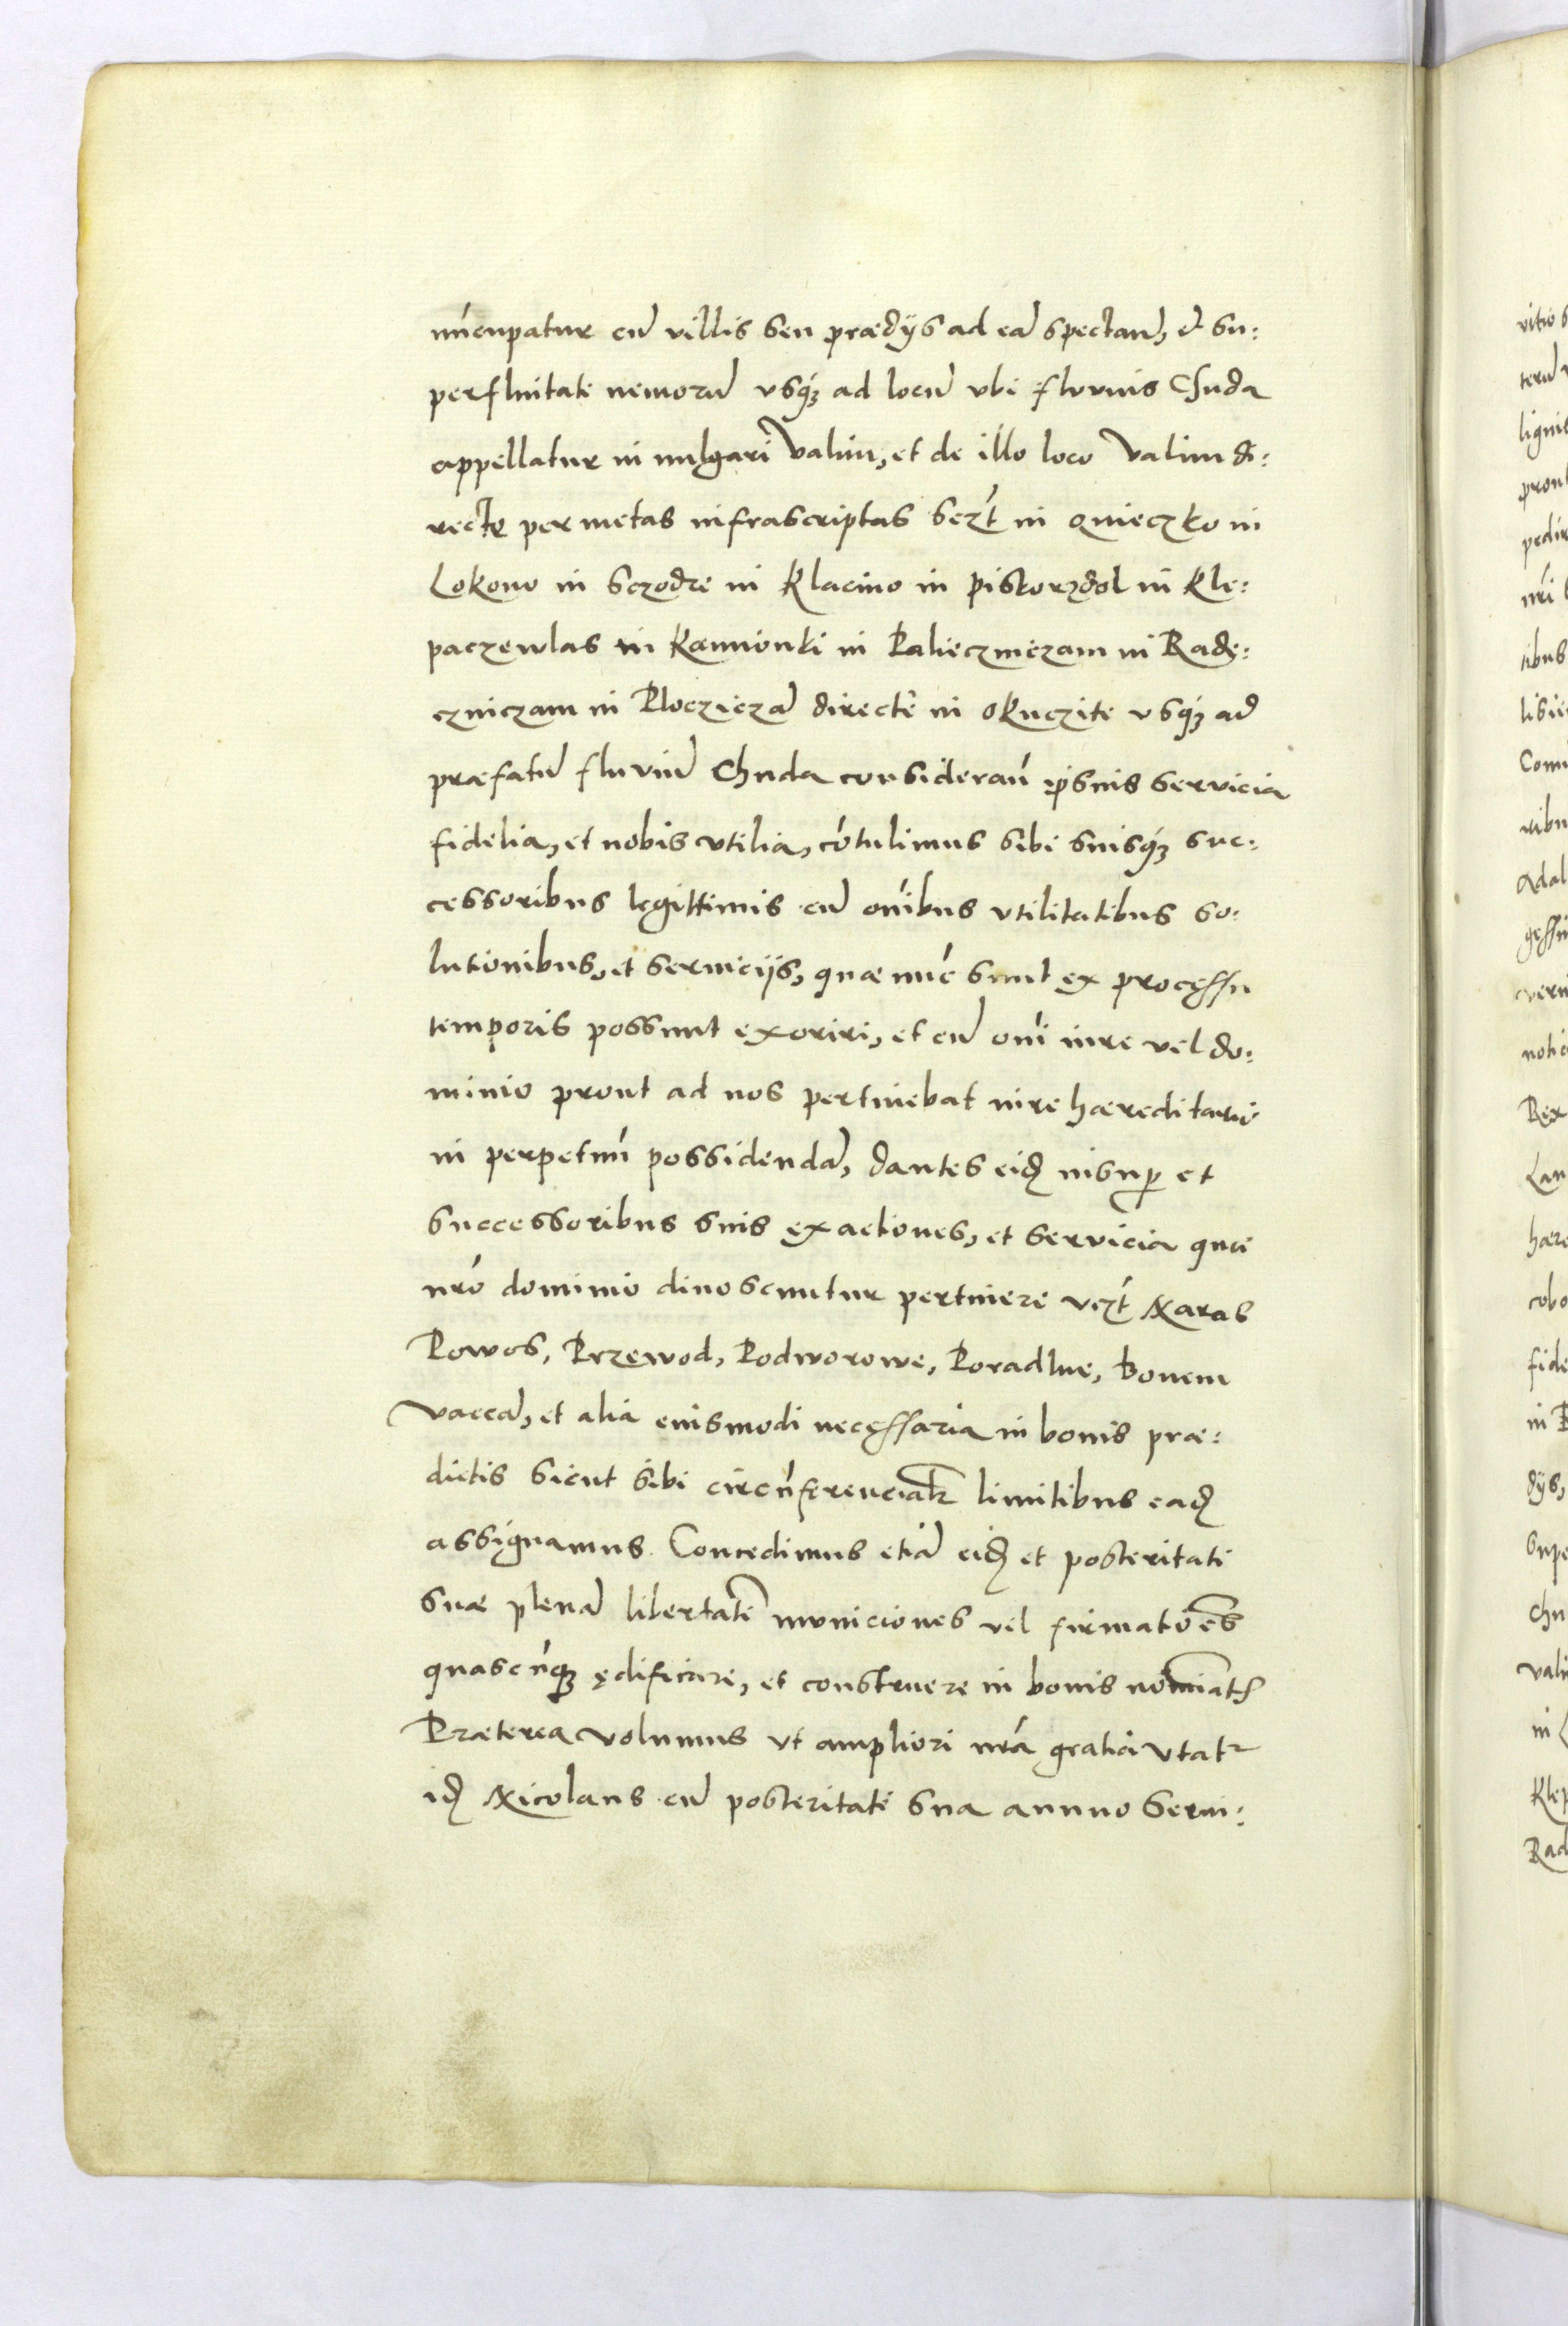 nu̅cupatur cu̅ villis seu prædijs ad ea̅ spectan̅, et su:
perfluitate nemoru̅ vsq́ꝫ ad locu̅ vbi fluuius Chuda
appellatur in uulgari Valim, et de illo loco Valim di:
recte per metas infrascriptas sczt́ in Quieczko in
Lokono in Sczodre in Klacino in Pistorzdol in Kle:
paczewlas in Kamionki in Palieczniczam in Radę:
czniczam in Ploczicza̅ directe in Okuczite vsq́ꝫ ad
præfatu̅ fluviu̅ Chuda consideran̅ ip̅sius servicia
fidelia, et nobis vtilia, co̅tulimus sibi suisq́ꝫ suc:
cessoribus legittimis cu̅ om̅ibus vtilitatibus so:
lutionibus, et seruicijs, quæ nu̅c sunt ex processu
temporis possunt exoriri, et cu̅ om̅i iure vel do:
minio prout ad nos pertinebat iure hæreditario
in perpetuu̅ possidenda̅, dantes eid̅ insup̅ et
successoribus suis exactiones, et servicia quæ
nr̅o dominio dinoscuntur pertinere vczt́ Naras
Powos, Przewod, Podworowe, Poradlne, bouem
vacca̅, et alia euismodi necessaria in bonis præ:
dictis sicut sibi circu̅ferenciatr̅ limitibus ead̅
assignamus. Concedimus etia̅ eid̅ et posteritati
suæ plena̅ libertate̅ municiones vel firmatio̅es
quascu̅qꝫ ędificare, et construere in bonis no̅minatis
Præterea volumus vt ampliori nr̅a gratia vtatr̅
id̅ Nicolaus cu̅ posteritate sua annuo serui: